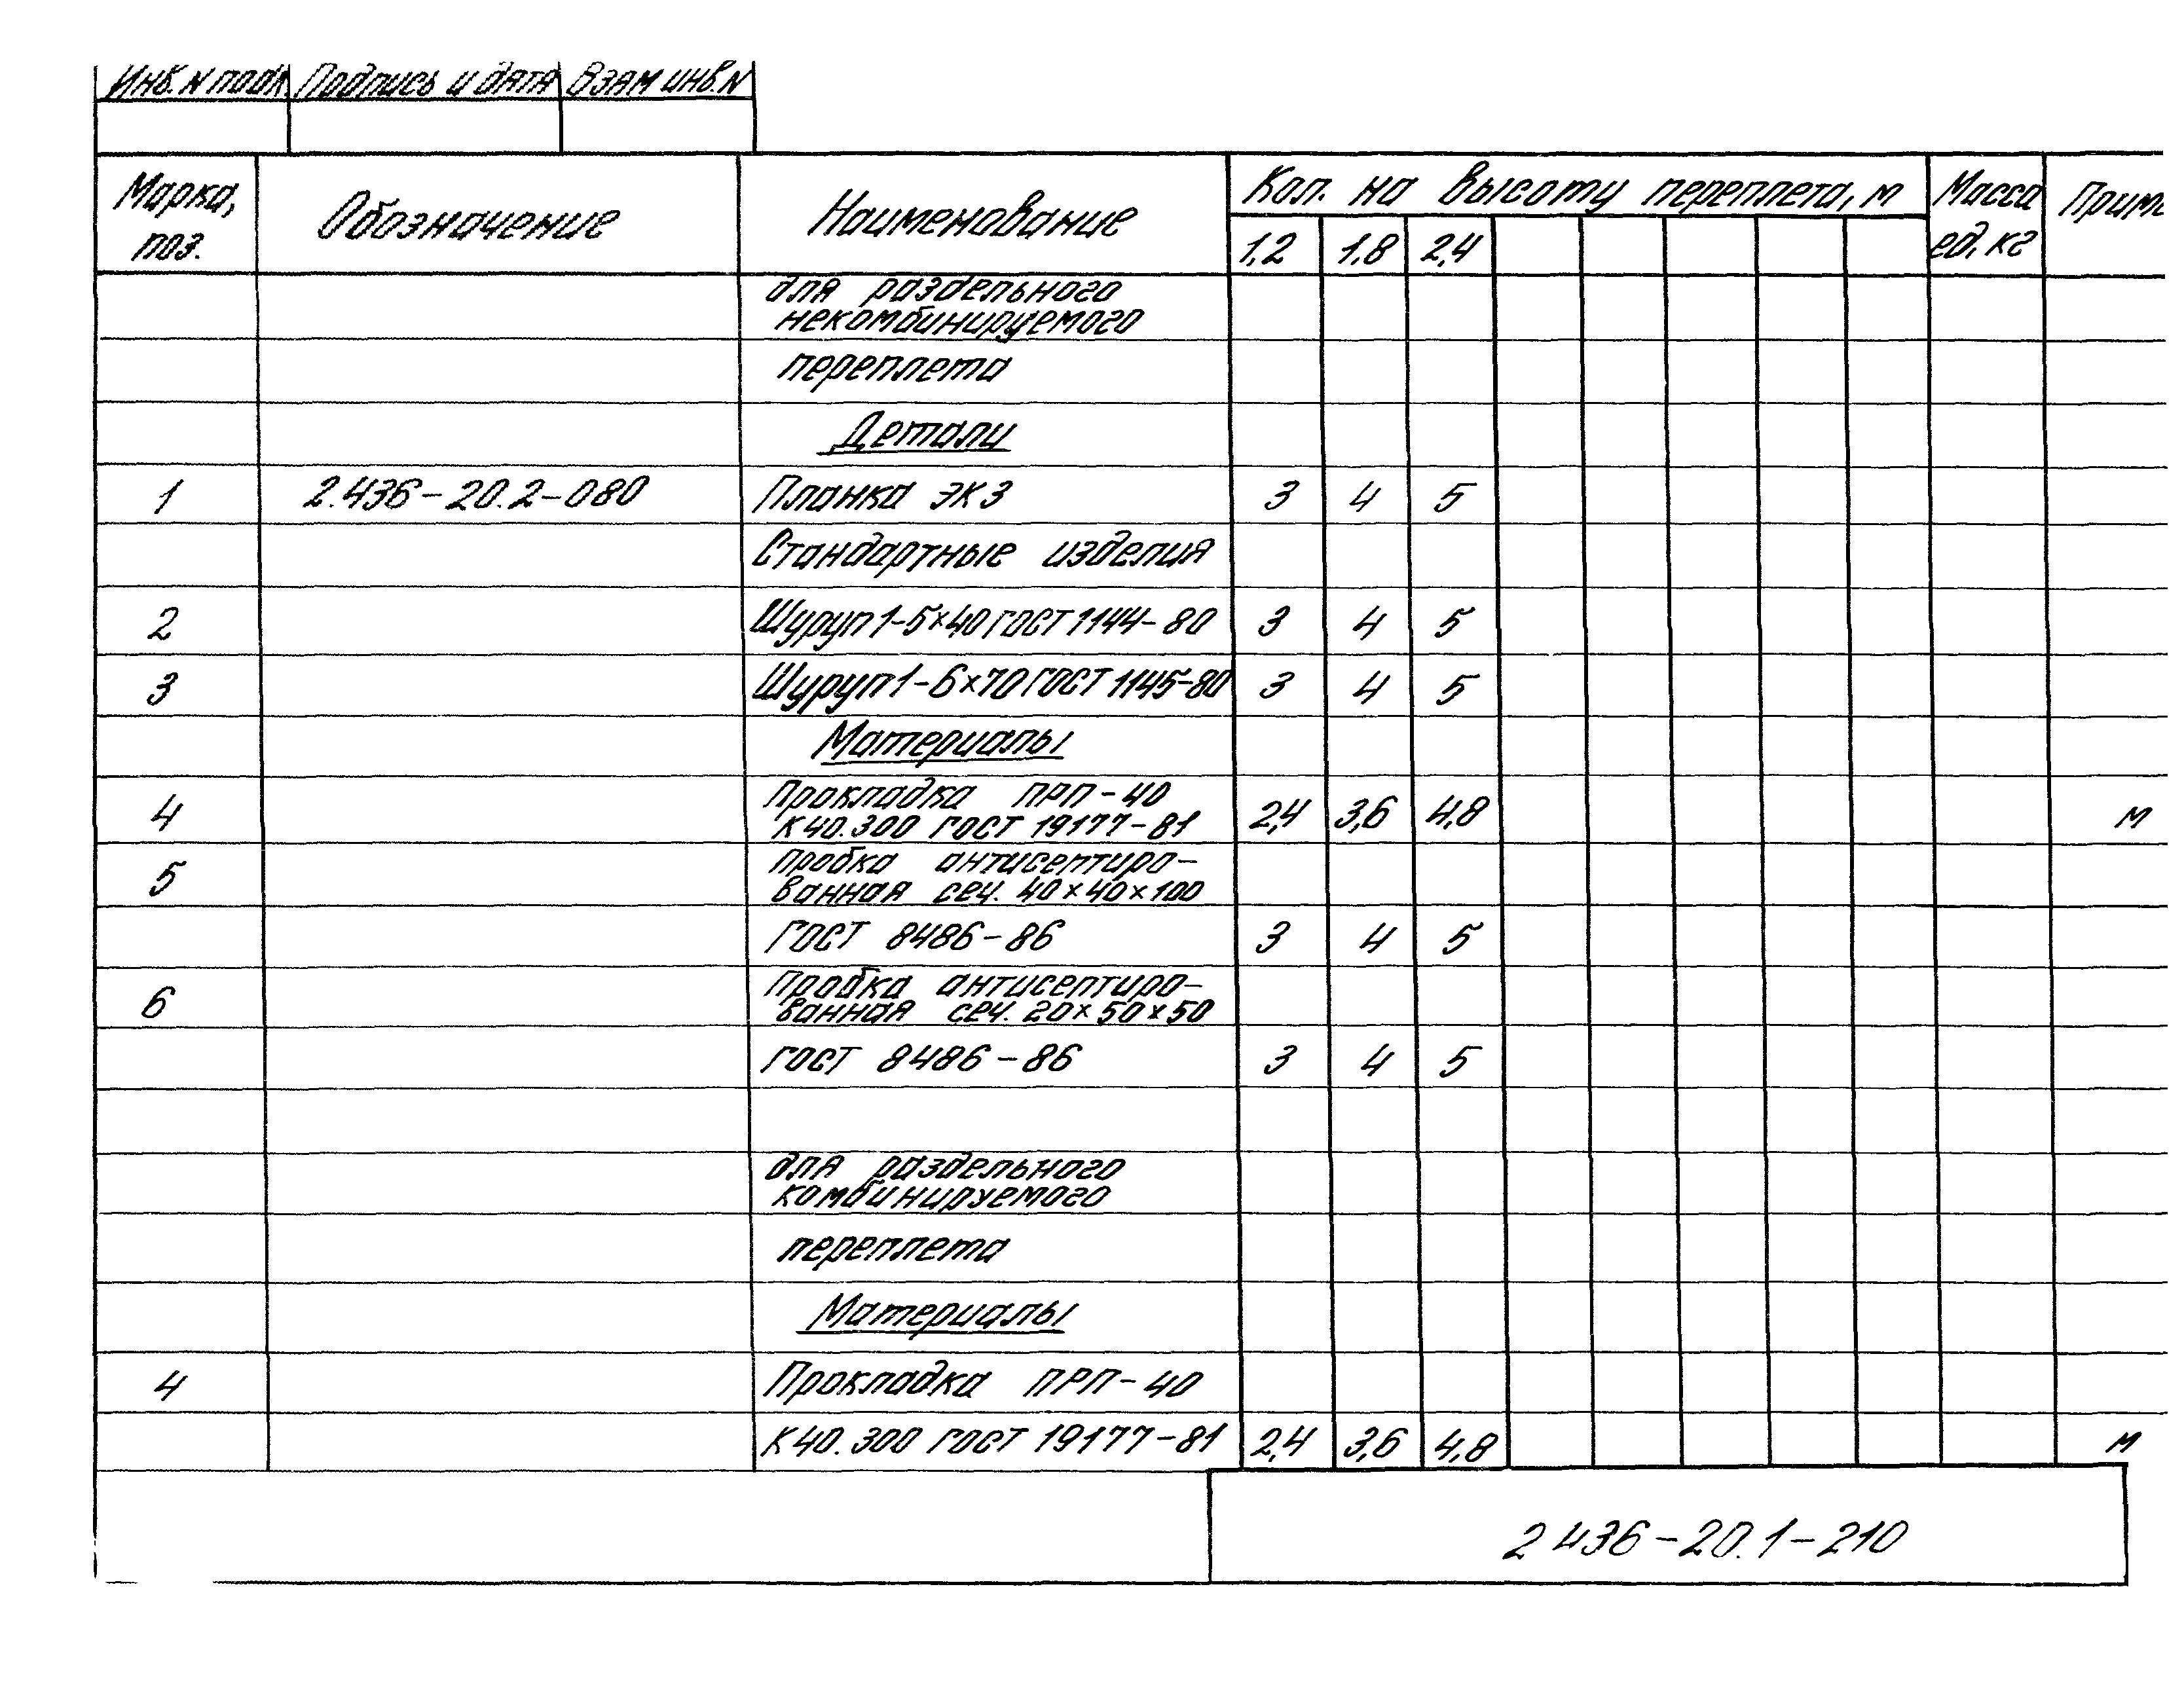 Инв. N подл. Подпись и дата Взам инв. N
Марка, поз. Обозначение Наименование Кол. на высоту переплета, м Масса ед, кг Прим
1,2 1,8 2,4
для раздельного
некомбинируемого
переплета
Детали
1 2.436-20.2-080 Планка ЭК3 3 4 5
Стандартные изделия
2 Шуруп 1-5×40 ГОСТ 1144-80 3 4 5
3 Шуруп 1-6×70 ГОСТ 1145-80 3 4 5
Материалы
4 Прокладка ПРП-40
К40.300 ГОСТ 19177-81 2,4 3,6 4,8 м
5 Пробка антисептиро-
ванная сеч. 40×40×100
ГОСТ 8486-86 3 4 5
6 Пробка антисептиро-
ванная сеч. 20×50×50
ГОСТ 8486-86 3 4 5
для раздельного
комбинируемого
переплета
Материалы
4 Прокладка ПРП-40
К40.300 ГОСТ 19177-81 2,4 3,6 4,8 м
2 436-20.1-210